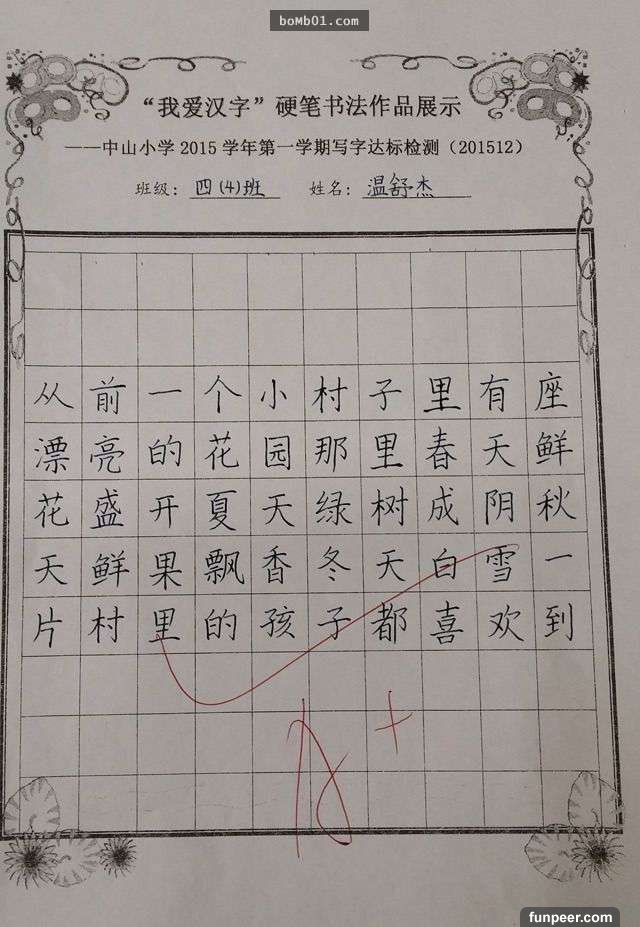 boMb01.com
“我爱汉字”硬笔书法作品展示
——中山小学2015学年第一学期写字达标检测（201512）
班级：四(4)班 姓名：温舒杰
从前一个小村子里有座
漂亮的花园那里春天鲜
花盛开夏天绿树成阴秋
天鲜果飘香冬天白雪一
片村里的孩子都喜欢到
funpeer.com